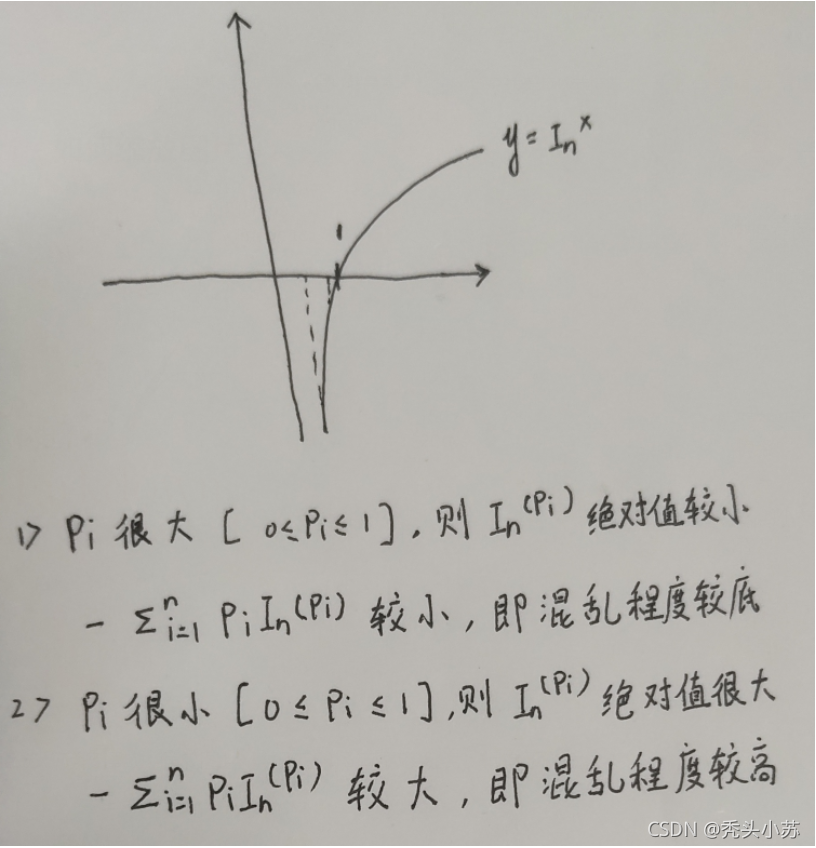 y = Inˣ
1
1> Pi 很大 [ 0≤Pi≤1 ] , 则 In^(Pi) 绝对值较小
- Σⁿᵢ₌₁ PiIn^(Pi) 较小 , 即混乱程度较底
2> Pi 很小 [ 0≤Pi≤1 ] , 则 In^(Pi) 绝对值很大
- Σⁿᵢ₌₁ PiIn^(Pi) 较大 , 即混乱程度较高
CSDN @秃头小苏